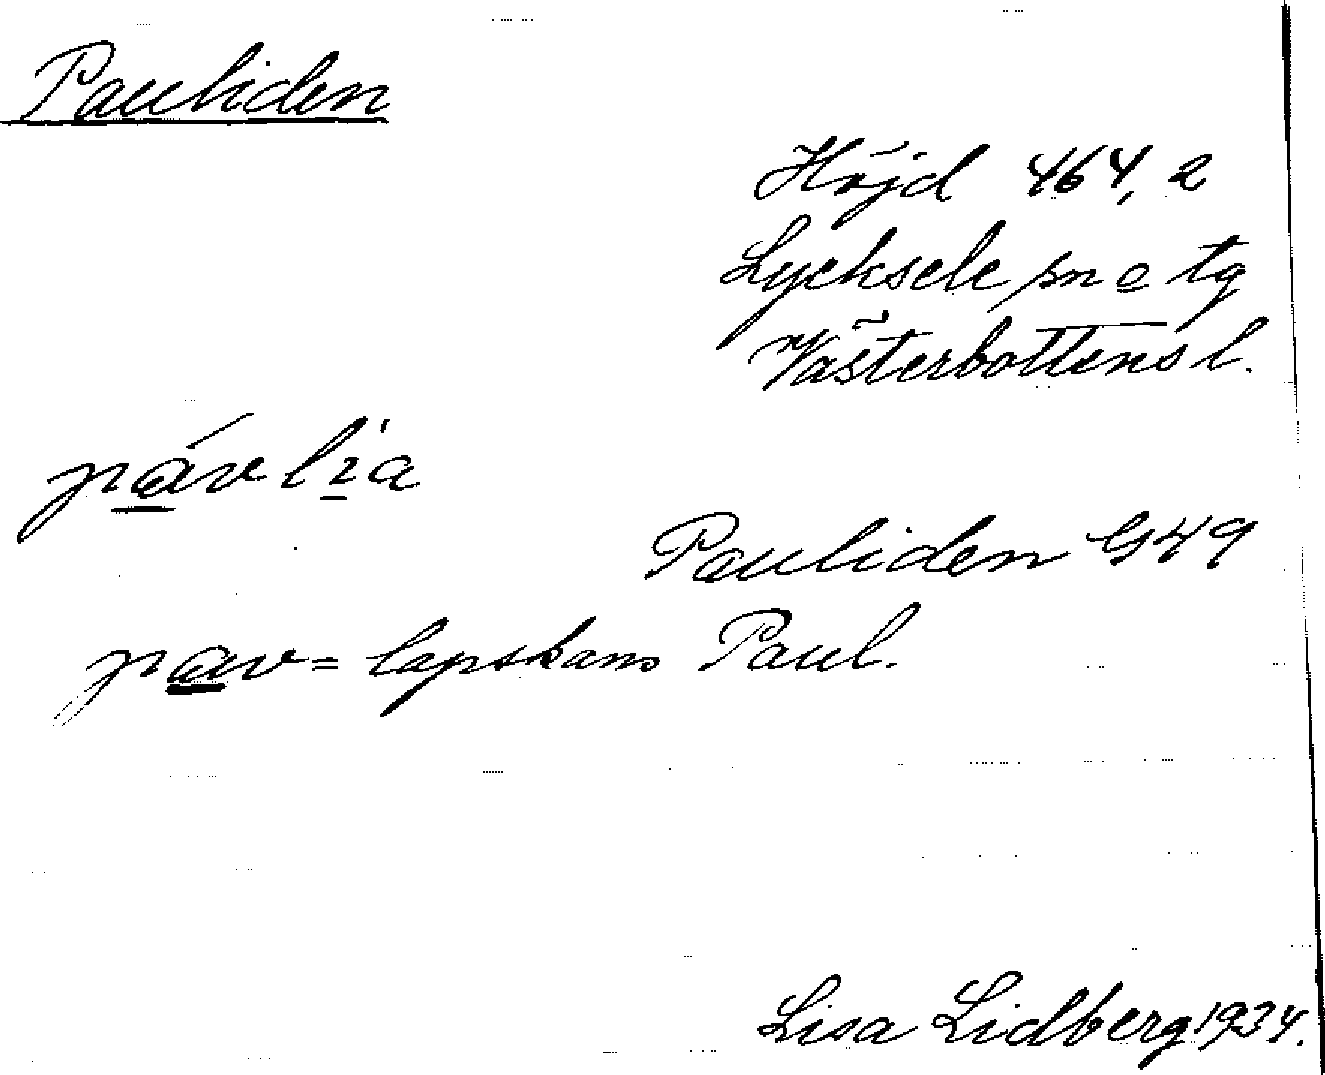 Pauliden
Höjd 464,2
Lycksele sn o tg
Västerbottens l.
pávlia
Pauliden G49
pav = lapskans Paul.
Lisa Lidberg 1934.